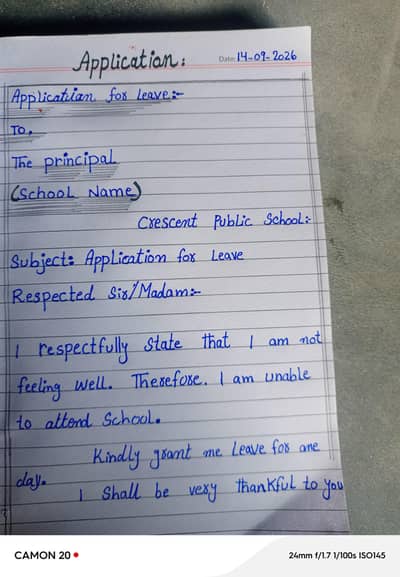 Application:
Date: 14-09-2026
Application for Leave:-
To,
The principal
(School Name)
Crescent Public School:-
Subject: Application for Leave
Respected Sir/Madam:-
I respectfully state that I am not
feeling well. Therefore. I am unable
to attend School.
Kindly grant me Leave for one
day.
I Shall be very thankful to you
CAMON 20
24mm f/1.7 1/100s ISO145